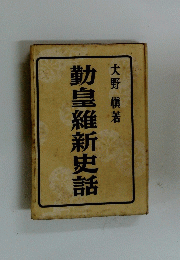 大野 慎著
勤皇維新史話